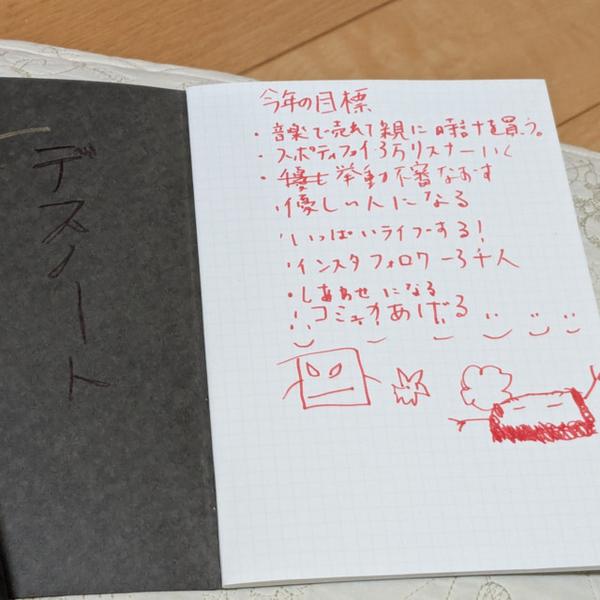 デスノート
今年の目標
・音楽で売れて親に時計を買う。
・スポティファイ3万リスナーいく
・挙動不審なおす
・優しい人になる
・いっぱいライブする!
・インスタフォロワー3千人
・しあわせになる
・コミュ力あげる